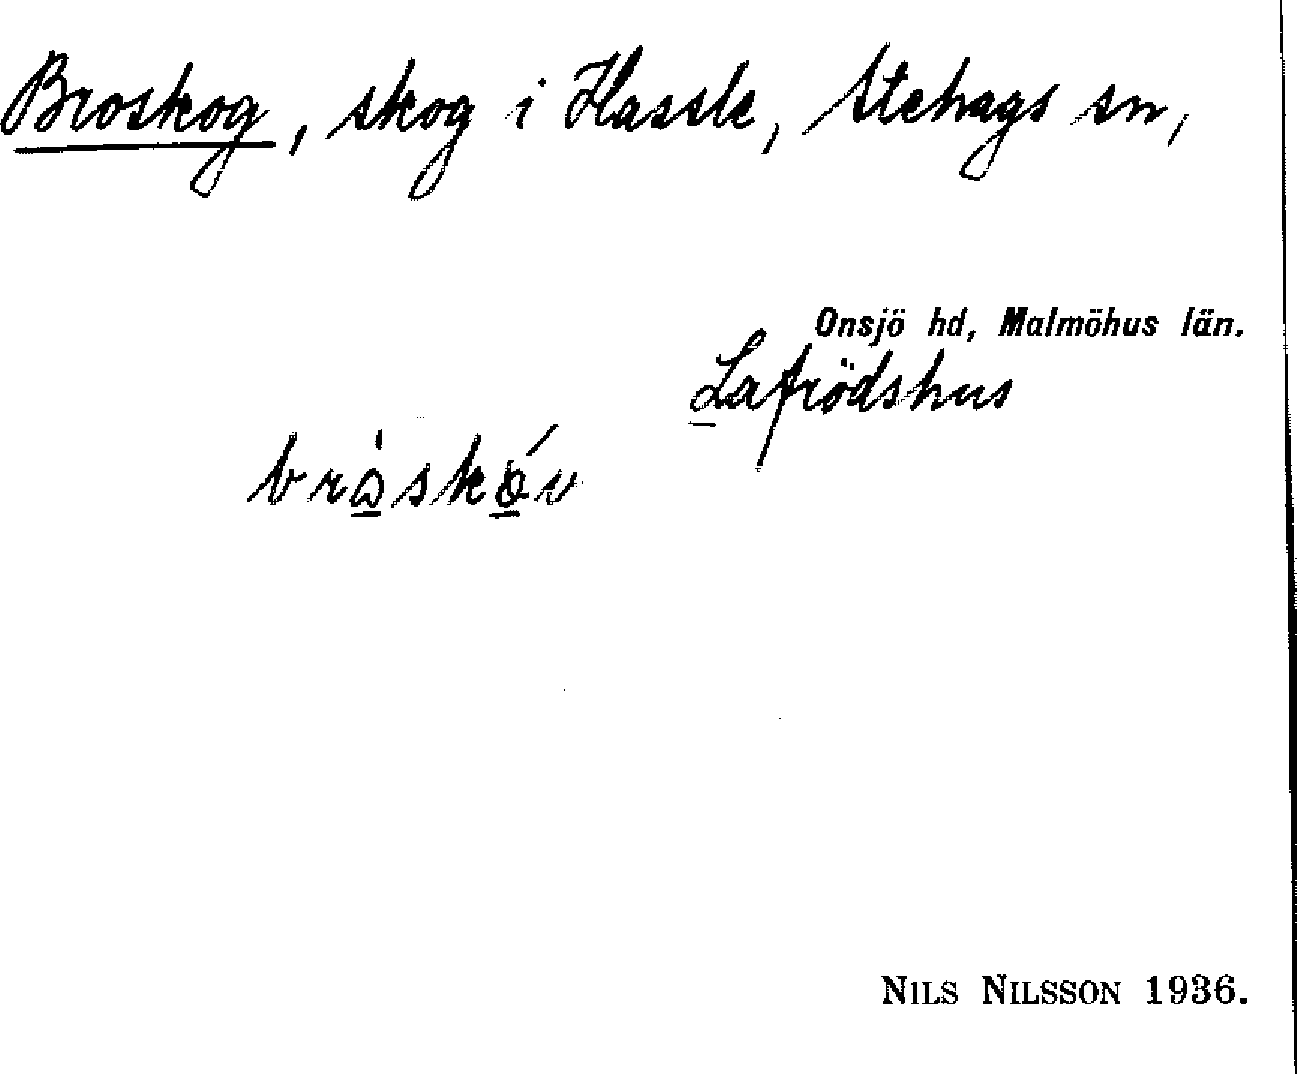 Broskog, skog i Hassle, Stehags sn,
Onsjö hd, Malmöhus län.
Lafrödshus
bròskóv
NILS NILSSON 1936.